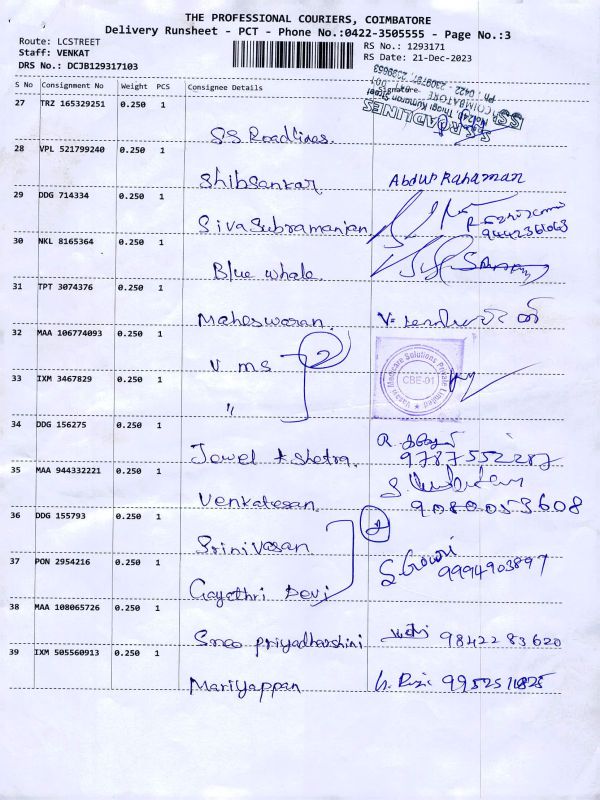 THE PROFESSIONAL COURIERS, COIMBATORE
Delivery Runsheet - PCT - Phone No.:0422-3505555 - Page No.:3
Route: LCSTREET
Staff: VENKAT
DRS No.: DCJB129317103
RS No.: 1293171
RS Date: 21-Dec-2023
S No Consignment No Weight PCS Consignee Details Signature
SS ROADLINES
COIMBATORE
27 TRZ 165329251 0.250 1
SS Roadlines.
28 VPL 521799240 0.250 1
Shibsankar Abdur Rahaman
29 DDG 714334 0.250 1
Sivasubramanian 9442361063
30 NKL 8165364 0.250 1
Blue whale
31 TPT 3074376 0.250 1
Maheswaran.
32 MAA 106774093 0.250 1
V ms 2
Medicare Solutions Private Limited
CBE-01
33 IXM 3467829 0.250 1
"
34 DDG 156275 0.250 1
Jowel 9787552287
35 MAA 944332221 0.250 1
Venkatesan 9080053608
36 DDG 155793 0.250 1
Srinivasan 2
37 PON 2954216 0.250 1
Gayathri Devi S. Gowri 9994903897
38 MAA 108065726 0.250 1
Sree priyadharshini 9842283620
39 IXM 505560913 0.250 1
Mariyappan 9952511825